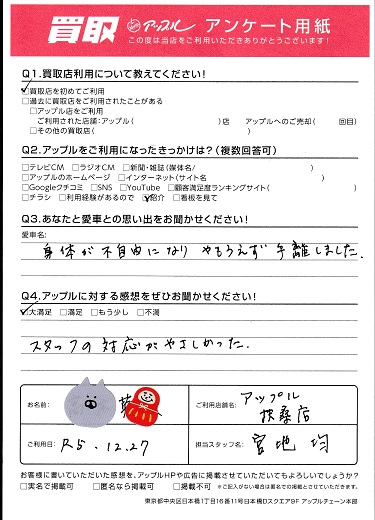 買取 アップル アンケート用紙
この度は当店をご利用いただきありがとうございます!
Q1.買取店利用について教えてください!
□買取店を初めてご利用
□過去に買取店をご利用されたことがある
□アップル店をご利用
ご利用された店舗:アップル( )店 アップルへのご売却( 回目)
□その他の買取店( )
Q2.アップルをご利用になったきっかけは?(複数回答可)
□テレビCM □ラジオCM □新聞・雑誌(媒体名/ )
□アップルのホームページ □インターネット(サイト名 )
□Googleクチコミ □SNS □YouTube □顧客満足度ランキングサイト( )
□チラシ □利用経験があるので □紹介 □看板を見て
Q3.あなたと愛車との思い出をお聞かせください!
愛車名:
身体が不自由になり やもうえず 手離しました.
Q4.アップルに対する感想をぜひお聞かせください!
□大満足 □満足 □もう少し □不満
スタッフの対応がやさしかった.
お名前
ご利用店舗名: アップル
扶桑店
ご利用日: R5.12.27
担当スタッフ名: 宮地 均
お客様に書いていただいた感想を、アップルHPや広告に掲載させていただいてもよろしいでしょうか?
□実名で掲載可 □匿名なら掲載可 □掲載不可 ※ご記入がない場合は匿名での掲載とさせていただきます。
東京都中央区日本橋1丁目16番11号日本橋Dスクエア9F アップルチェーン本部